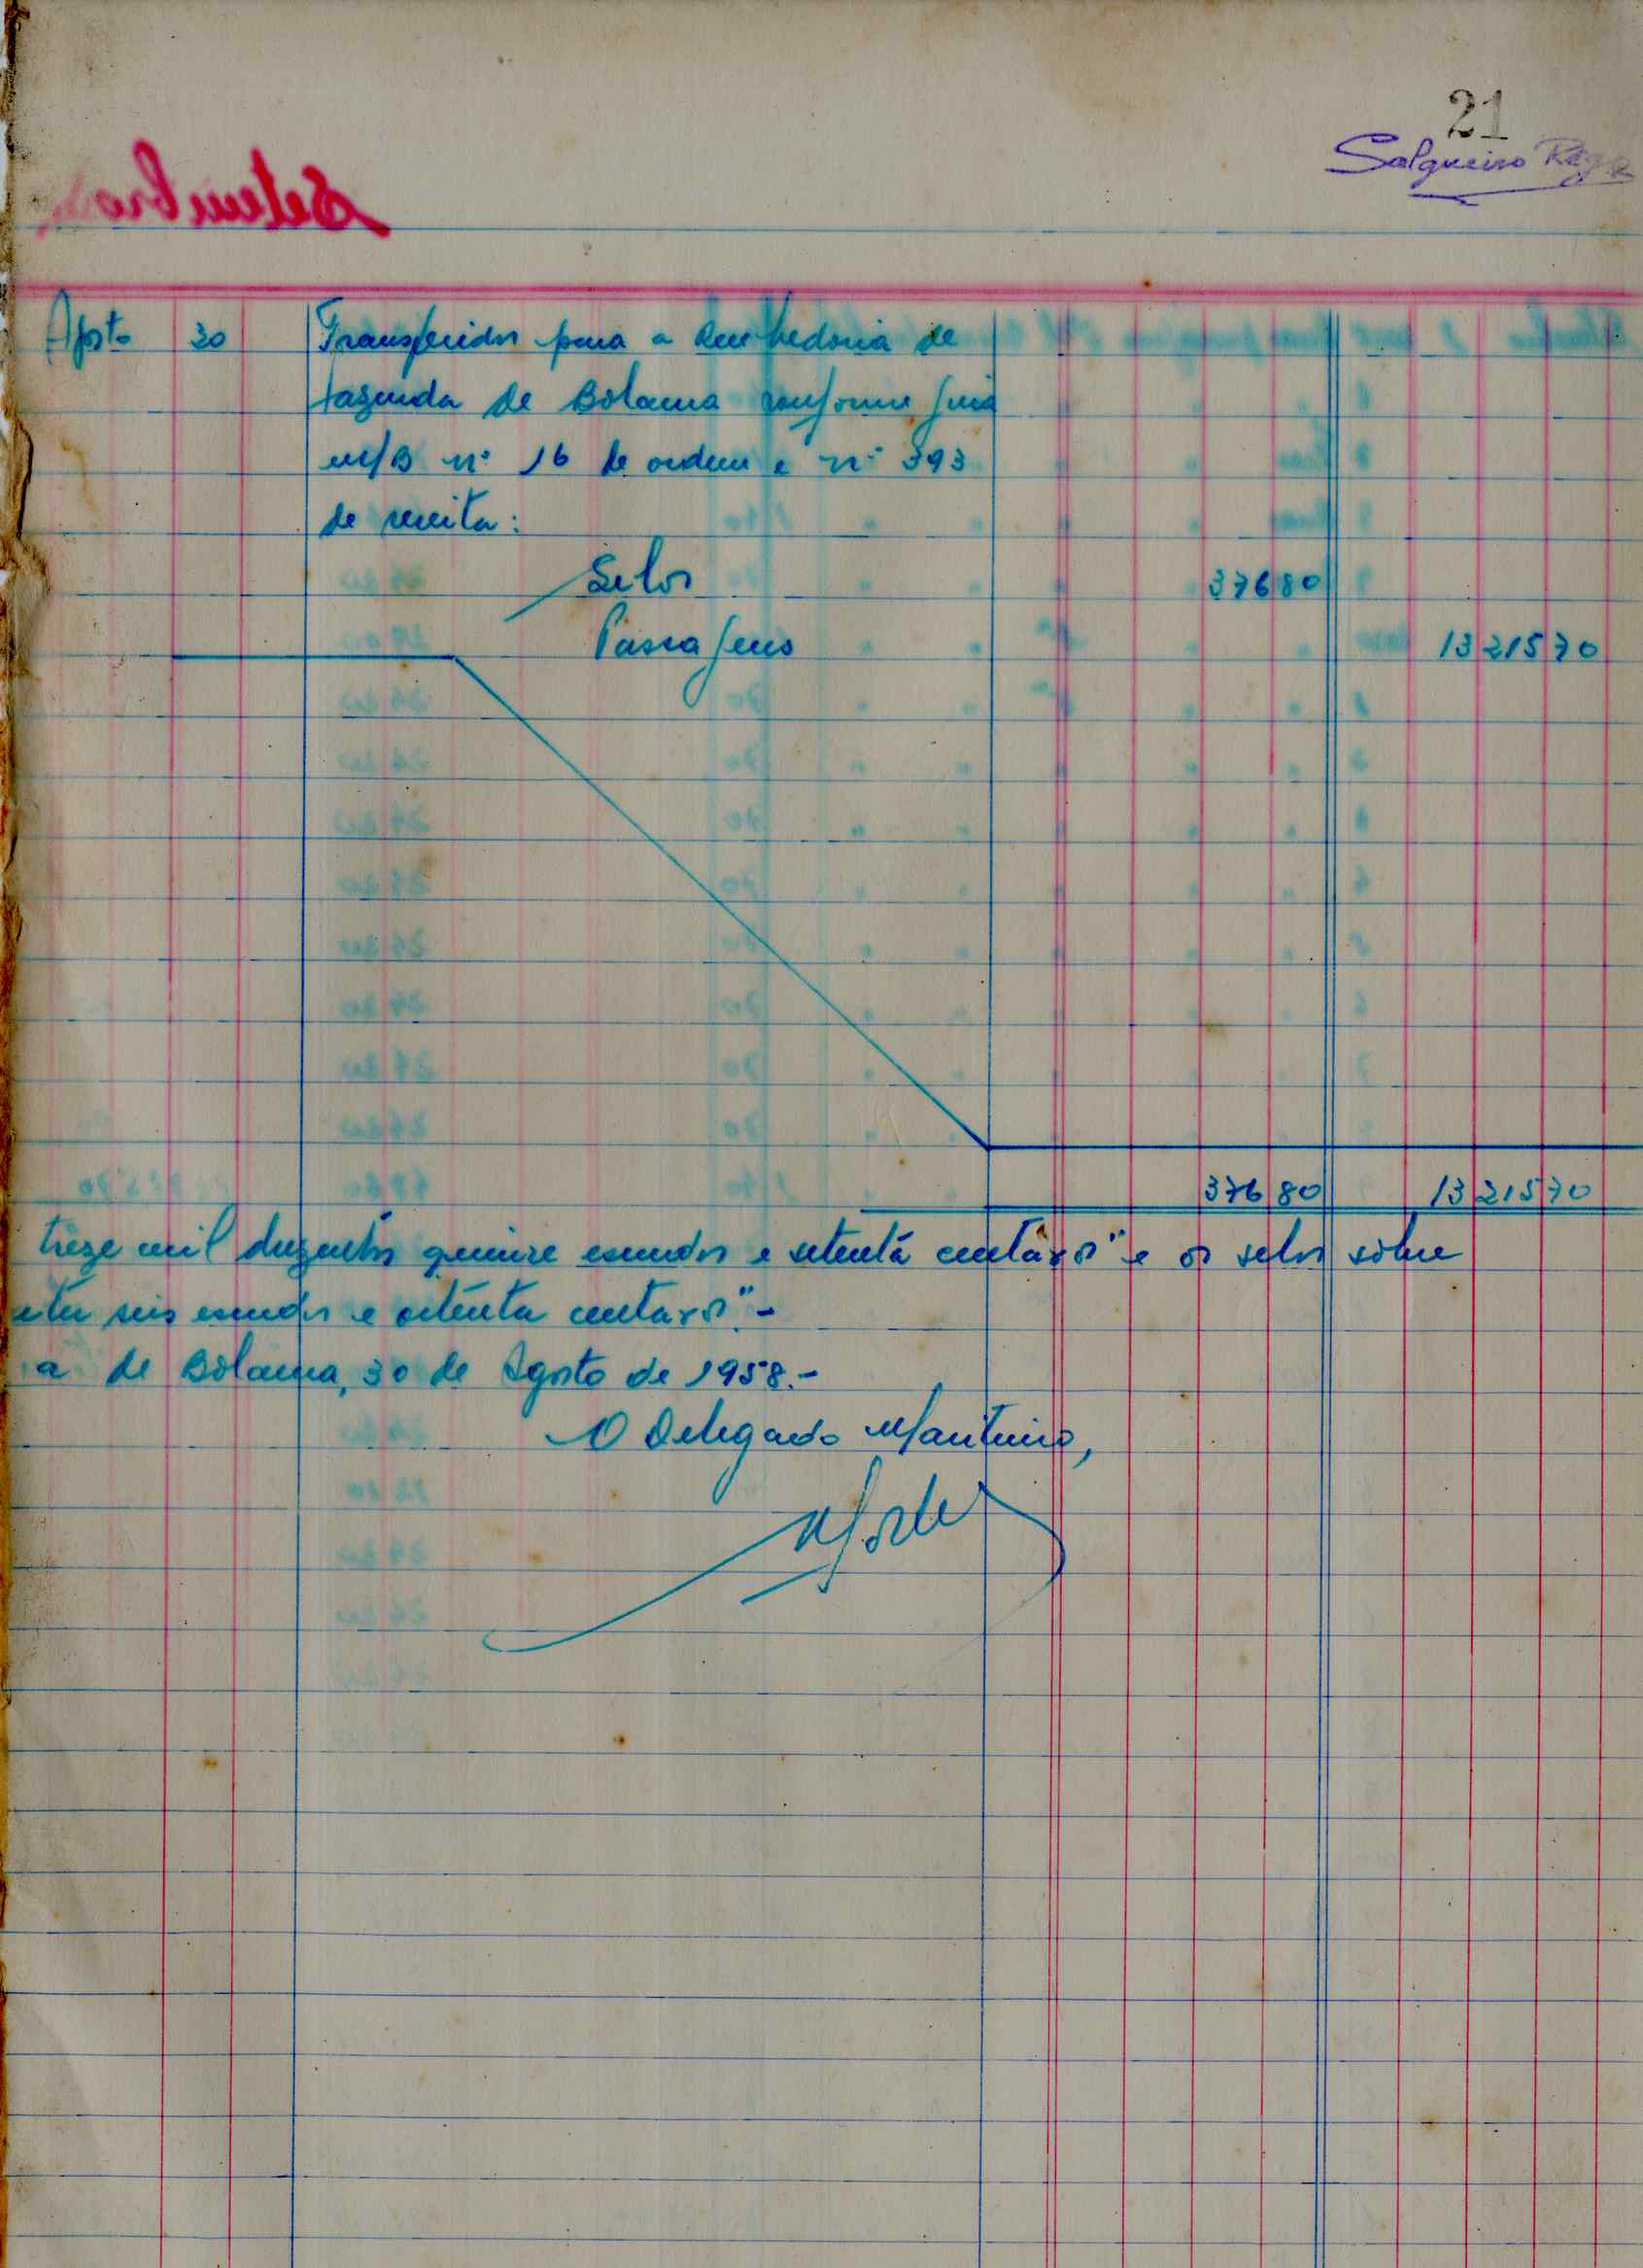 21
Salgueiro Rego
Setembro
Agosto 30 Transferidos para a Recebedoria de
fazenda de Bolama conforme guia
m/B nº 16 de ordem e nº 393
de receita:
Selos 376 80
Passagens 13 215 70
376 80 13 215 70
treze mil duzentos quinze escudos e setenta centavos" e os selos sôbre
seis escudos e oitenta centavos".-
a de Bolama, 30 de Agosto de 1958.-
O Delegado Marítimo,